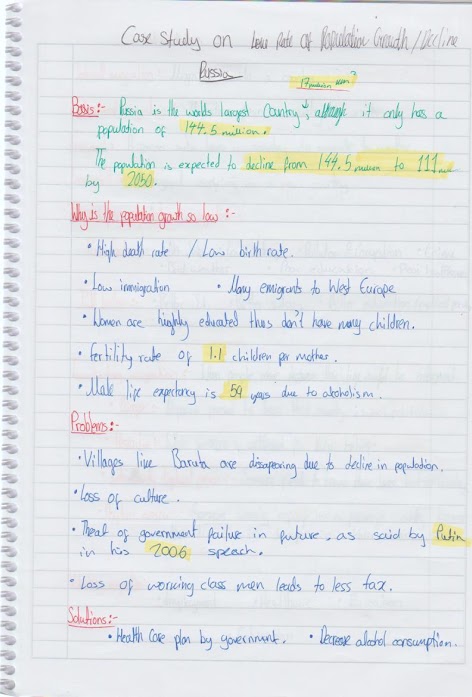 Case Study on Low Rate of Population Growth / Decline
Russia
17 million km²
Basis:- Russia is the worlds largest Country, although it only has a
population of 144.5 million.
The population is expected to decline from 144.5 million to 111 mil
by 2050.
Why is the population growth so low :-
• High death rate / Low birth rate.
• Low immigration • Many emigrants to West Europe
• Women are highly educated thus don't have many children.
• Fertility rate of 1.1 children per mother.
• Male life expectancy is 59 years due to alcoholism.
Problems:-
• Villages like Baruta are disapearing due to decline in population.
• Loss of culture.
• Threat of government failure in future. as said by Putin
in his 2006 speech.
• Loss of working class men leads to less tax.
Solutions:-
• Health Care plan by government. • Decrease alcohol consumption.